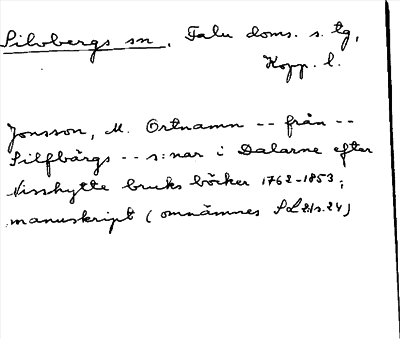 Silvbergs sn, Falu doms. s. tg,
Kopp. l.
Jonsson, M. Ortnamn -- från --
Silfbärgs -- s:nar i Dalarne efter
Visshytte bruks böcker 1762-1853;
manuskript (omnämnes SL 21 s. 24)